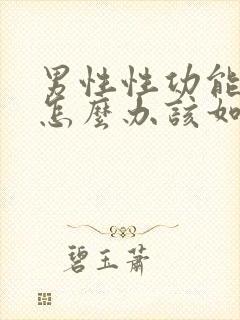 男性性功能
怎麼办該如
碧玉蕭